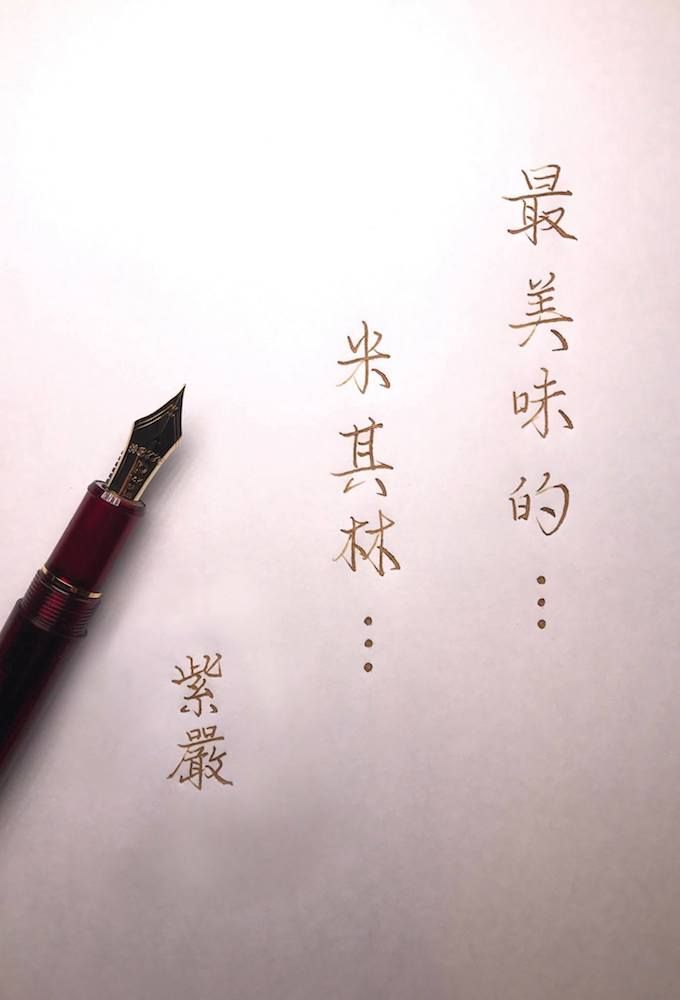 最美味的…
米其林…
紫嚴